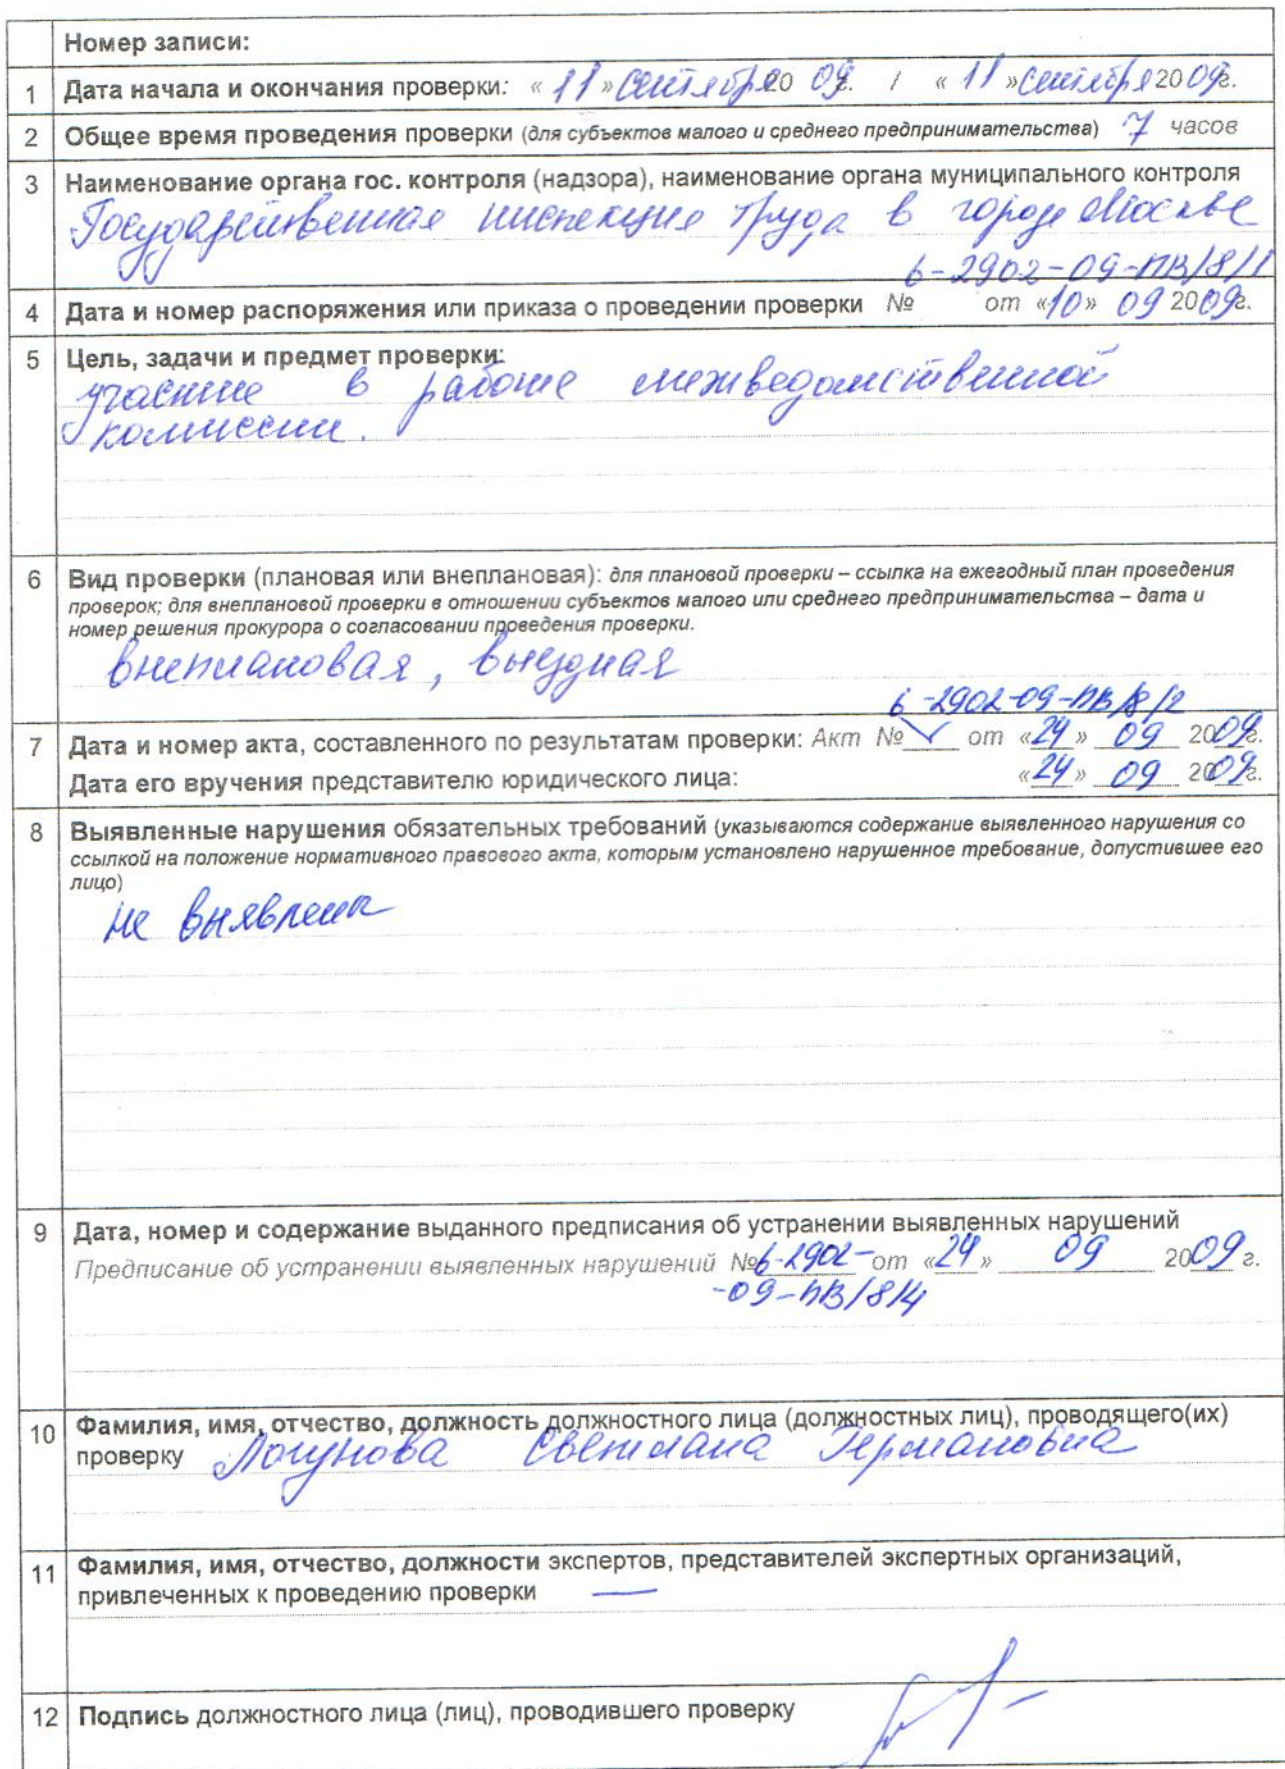 Номер записи:
1 Дата начала и окончания проверки: « 11 » сентября 20 09 г. / « 11 » сентября 20 09 г.
2 Общее время проведения проверки (для субъектов малого и среднего предпринимательства) 7 часов
3 Наименование органа гос. контроля (надзора), наименование органа муниципального контроля
Государственная инспекция труда в городе Москве
6-2902-09-ПВ/8/1
4 Дата и номер распоряжения или приказа о проведении проверки № от «10» 09 2009г.
5 Цель, задачи и предмет проверки:
участие в работе межведомственной
комиссии.
6 Вид проверки (плановая или внеплановая): для плановой проверки – ссылка на ежегодный план проведения
проверок; для внеплановой проверки в отношении субъектов малого или среднего предпринимательства – дата и
номер решения прокурора о согласовании проведения проверки.
внеплановая, выездная
6-2902-09-ПВ/8/2
7 Дата и номер акта, составленного по результатам проверки: Акт № от «24» 09 2009г.
Дата его вручения представителю юридического лица: «24» 09 2009г.
8 Выявленные нарушения обязательных требований (указываются содержание выявленного нарушения со
ссылкой на положение нормативного правового акта, которым установлено нарушенное требование, допустившее его
лицо)
не выявлены
9 Дата, номер и содержание выданного предписания об устранении выявленных нарушений
Предписание об устранении выявленных нарушений №6-2902- от «24» 09 2009 г.
-09-ПВ/8/4
10 Фамилия, имя, отчество, должность должностного лица (должностных лиц), проводящего(их)
проверку Логунова Светлана Германовна
11 Фамилия, имя, отчество, должности экспертов, представителей экспертных организаций,
привлеченных к проведению проверки —
12 Подпись должностного лица (лиц), проводившего проверку